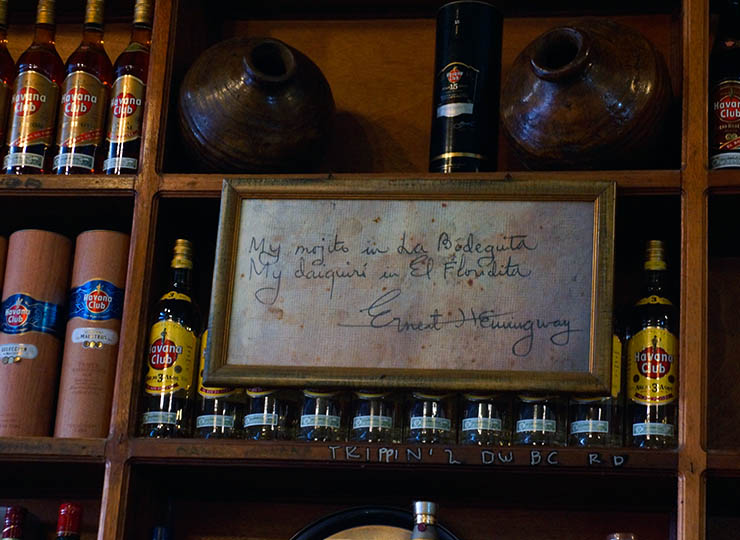 Havana
Club
Havana
Club
Havana
Club
Havana
Club
15
Havana
Club
My mojito in La Bodeguita
My daiquiri in El Floridita
Ernest Hemingway
Havana
Club
Havana
Club
MAESTROS
3
Havana
Club
3
Havana
Club
AÑEJO 3 AÑOS
TRIPPIN' 2 DW BC R D